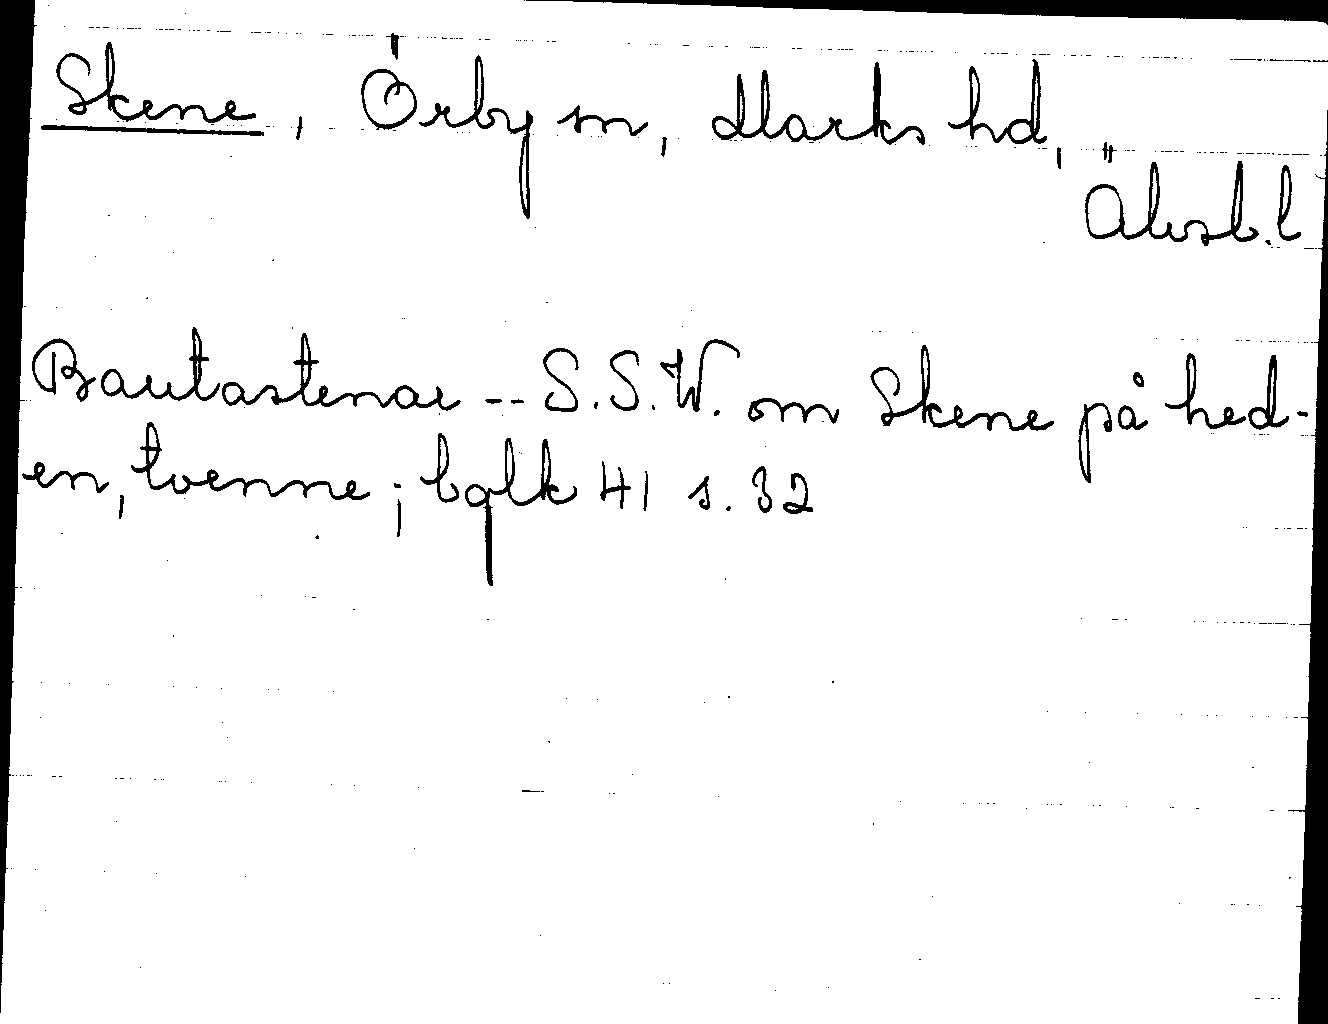 Skene, Örby sn, Marks hd,
Älvsb. l
Bautastenar -- S.S.W. om Skene på hed-
en, tvenne; bglk 41 s. 32